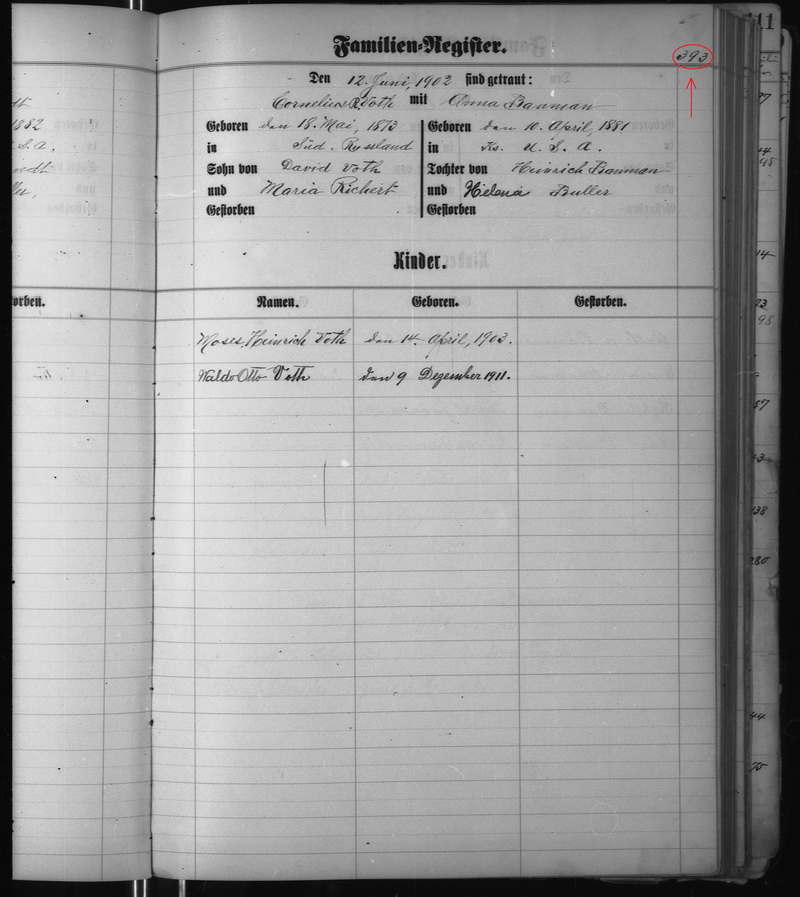 Familien-Register.
393
Den 12. Juni, 1902 sind getraut:
Cornelius R. Voth mit Anna Banman
Geboren den 18. Mai, 1873
Geboren den 10. April, 1881
in Süd. Russland
in Ks. U. S. A.
Sohn von David Voth
Tochter von Heinrich Banman
und Maria Richert
und Helena Buller
Gestorben
Gestorben
Kinder.
Namen. Geboren. Gestorben.
Moses, Heinrich Voth den 14. April, 1903.
Waldo Otto Voth den 9 Dezember 1911.
1882
S. A.
orben.
11